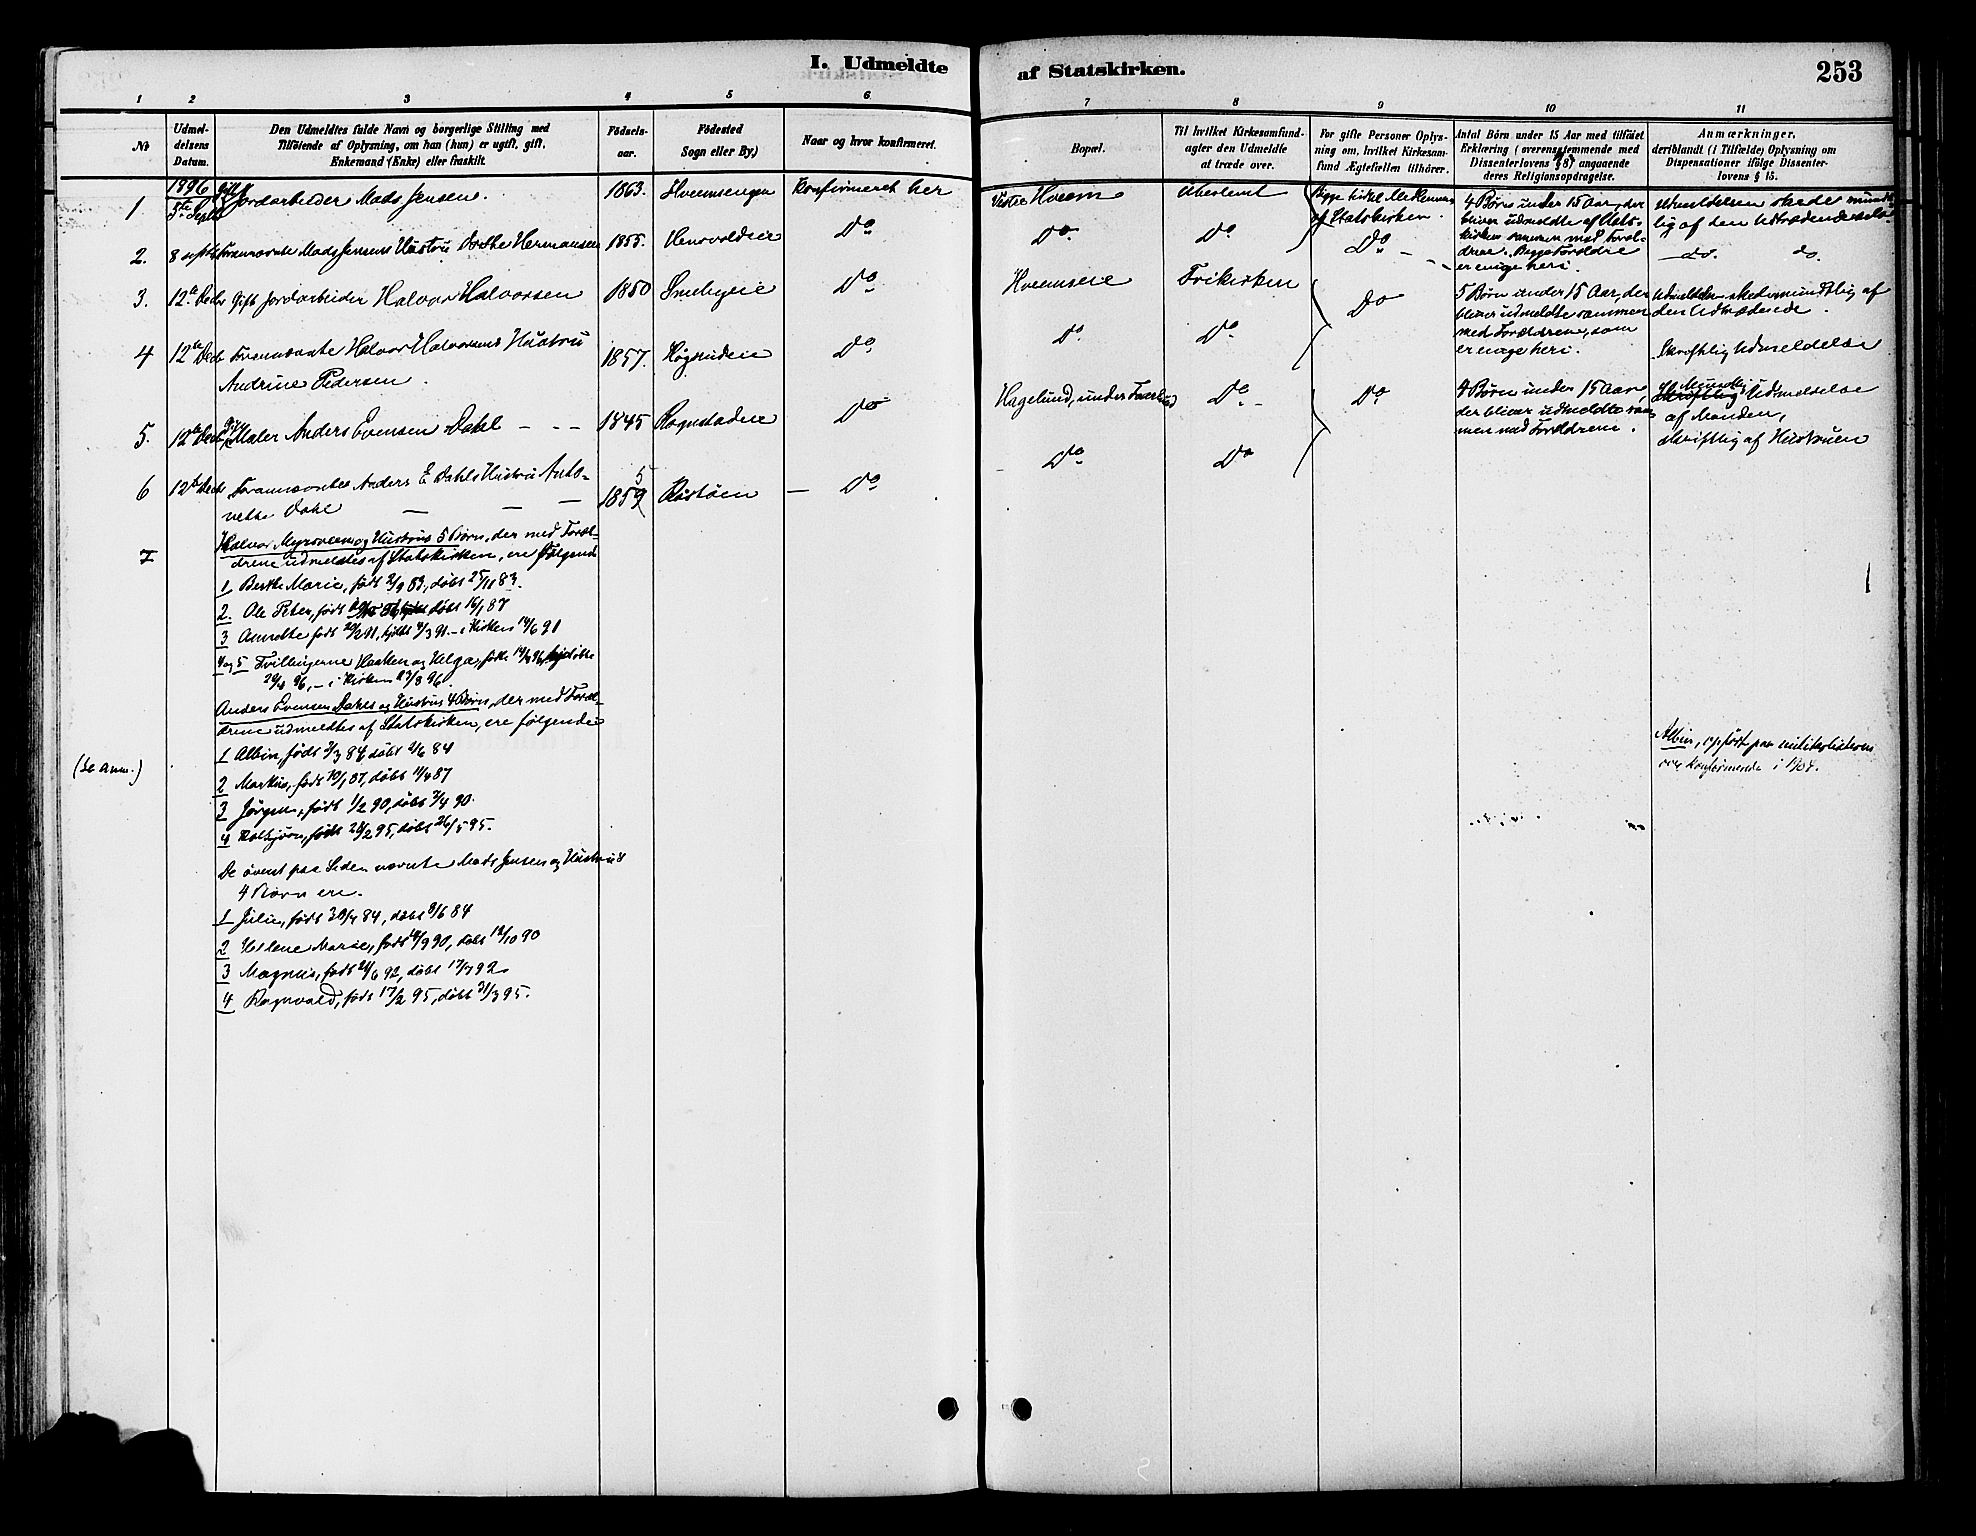 I. Udmeldte
af Statskirken.
253
1
2
3
4
5
6
7
8
9
10
11
No
Udmel-
delsens
Datum.
Den Udmeldtes fulde Navn og borgerlige Stilling med
Tilföiende af Oplysning, om han (hun) er ugift, gift,
Enkemand (Enke) eller fraskilt.
Födsels-
aar.
Födested
Sogn eller By.)
Naar og hvor konfirmeret.
Bopæl.
Til hvilket Kirkesamfund-
agter den Udmeldte
at træde over.
For gifte Personer Oplys-
ning om, hvilket Kirkesam-
fund Ægtefællen tilhörer.
Antal Börn under 15 Aar med tilföiet
Erklæring (overensstemmende med
Dissenterlovens § 8) angaaende
deres Religionsopdragelse.
Anmærkninger,
deriblandt (i Tilfælde) Oplysning om
Dispensationer ifölge Dissenter-
lovens § 15.
1896
1
5te Septbr
Gift Jordarbeider Mads Jensen.
1863.
Hveemsengen
Konfirmeret her
Vestre Hveem
Ubestemt
Begge hidtil Medlemmer
af Statskirken.
4 Børn under 15 Aar, der
bliver udmeldte af Stats-
kirken sammen med Foræl-
drene. Begge Forældre
er enige heri.
Udmeldelsen skede mundt-
lig af den Udtrædende selv
2.
8 septbr Frannævnte Mads Jensens Hustru Dorthe Hermansen
1855.
Do
Do
Do
Do
do. do.
3.
12te Decbr Gift Jordarbeider Halvor Halvorsen
1850
Smebyeie
Do
Hveemseie
Frikirken
Do
5 Børn under 15 Aar, der
bliver udmeldte sammen
med Forældrene, som
er enige heri.
Udmeldelsen skede mundtlig af
den Udtrædende.
4
12te Decbr Frannævnte Halvor Halvorsens Hustru
Andrine Pedersen.
1857.
Do
Do
Do
Skriftlig Udmeldelse
5.
12te Decbr Gift Maler Anders Evensen Dahl
1845
Rognstadeie
Do
Hagelund, under
Do
Do
4 Børn under 15 Aar,
der bliver udmeldte sam-
men med Forældrene.
Mundtlig Udmeldelse
af Manden,
skriftlig af Hustruen
6
12te Decbr Frannævnte Anders E Dahls Hustru Anto-
nette Dahl
1859
5
Do
Do
Do
I
Halvor Myrsveen og Hustrus 5 Børn, der med Foræl-
drene udmeldtes af Statskirken, ere Følgende
1 Berthe Marie, født 2/9 83, døbt 25/11 83.
2. Ole Peter, født døbt 16/1 87
3 Annette født 20/2 91, hjdbt 4/3 91 – i Kirken 14/6 91
4 og 5 Tvillingerne Haaken og Helga, født 14/4 96, hjdøbte
29/4 96, – i Kirken 23/8 96.
Anders Evensen Dahls og Hustrus 4 Børn, der med Foræl-
drene udmeldtes af Statskirken, ere følgende
(Se anm.)
1 Albin, født 3/3 84, døbt 2/6 84
Albin, opført paa militærlisterne
og konfirmerede i 1904.
2 Markus, født 10/1 87, døbt 11/4 87
3 Jørgen, født 1/2 90, døbt 7/4 90.
4 Kolbjørn, født 28/2 95, døbt 26/5 95.
De øverst paa Siden nævnte Mads Jensen og Hustrus
4 Børn ere.
1 Julie, født 30/4 84, døbt 8/6 84
2 Helene Marie, født 14/9 90, døbt 12/10 90
3 Magnus, født 24/6 92, døbt 17/7 92
4 Ragnvald, født 17/2 95, døbt 31/3 95.